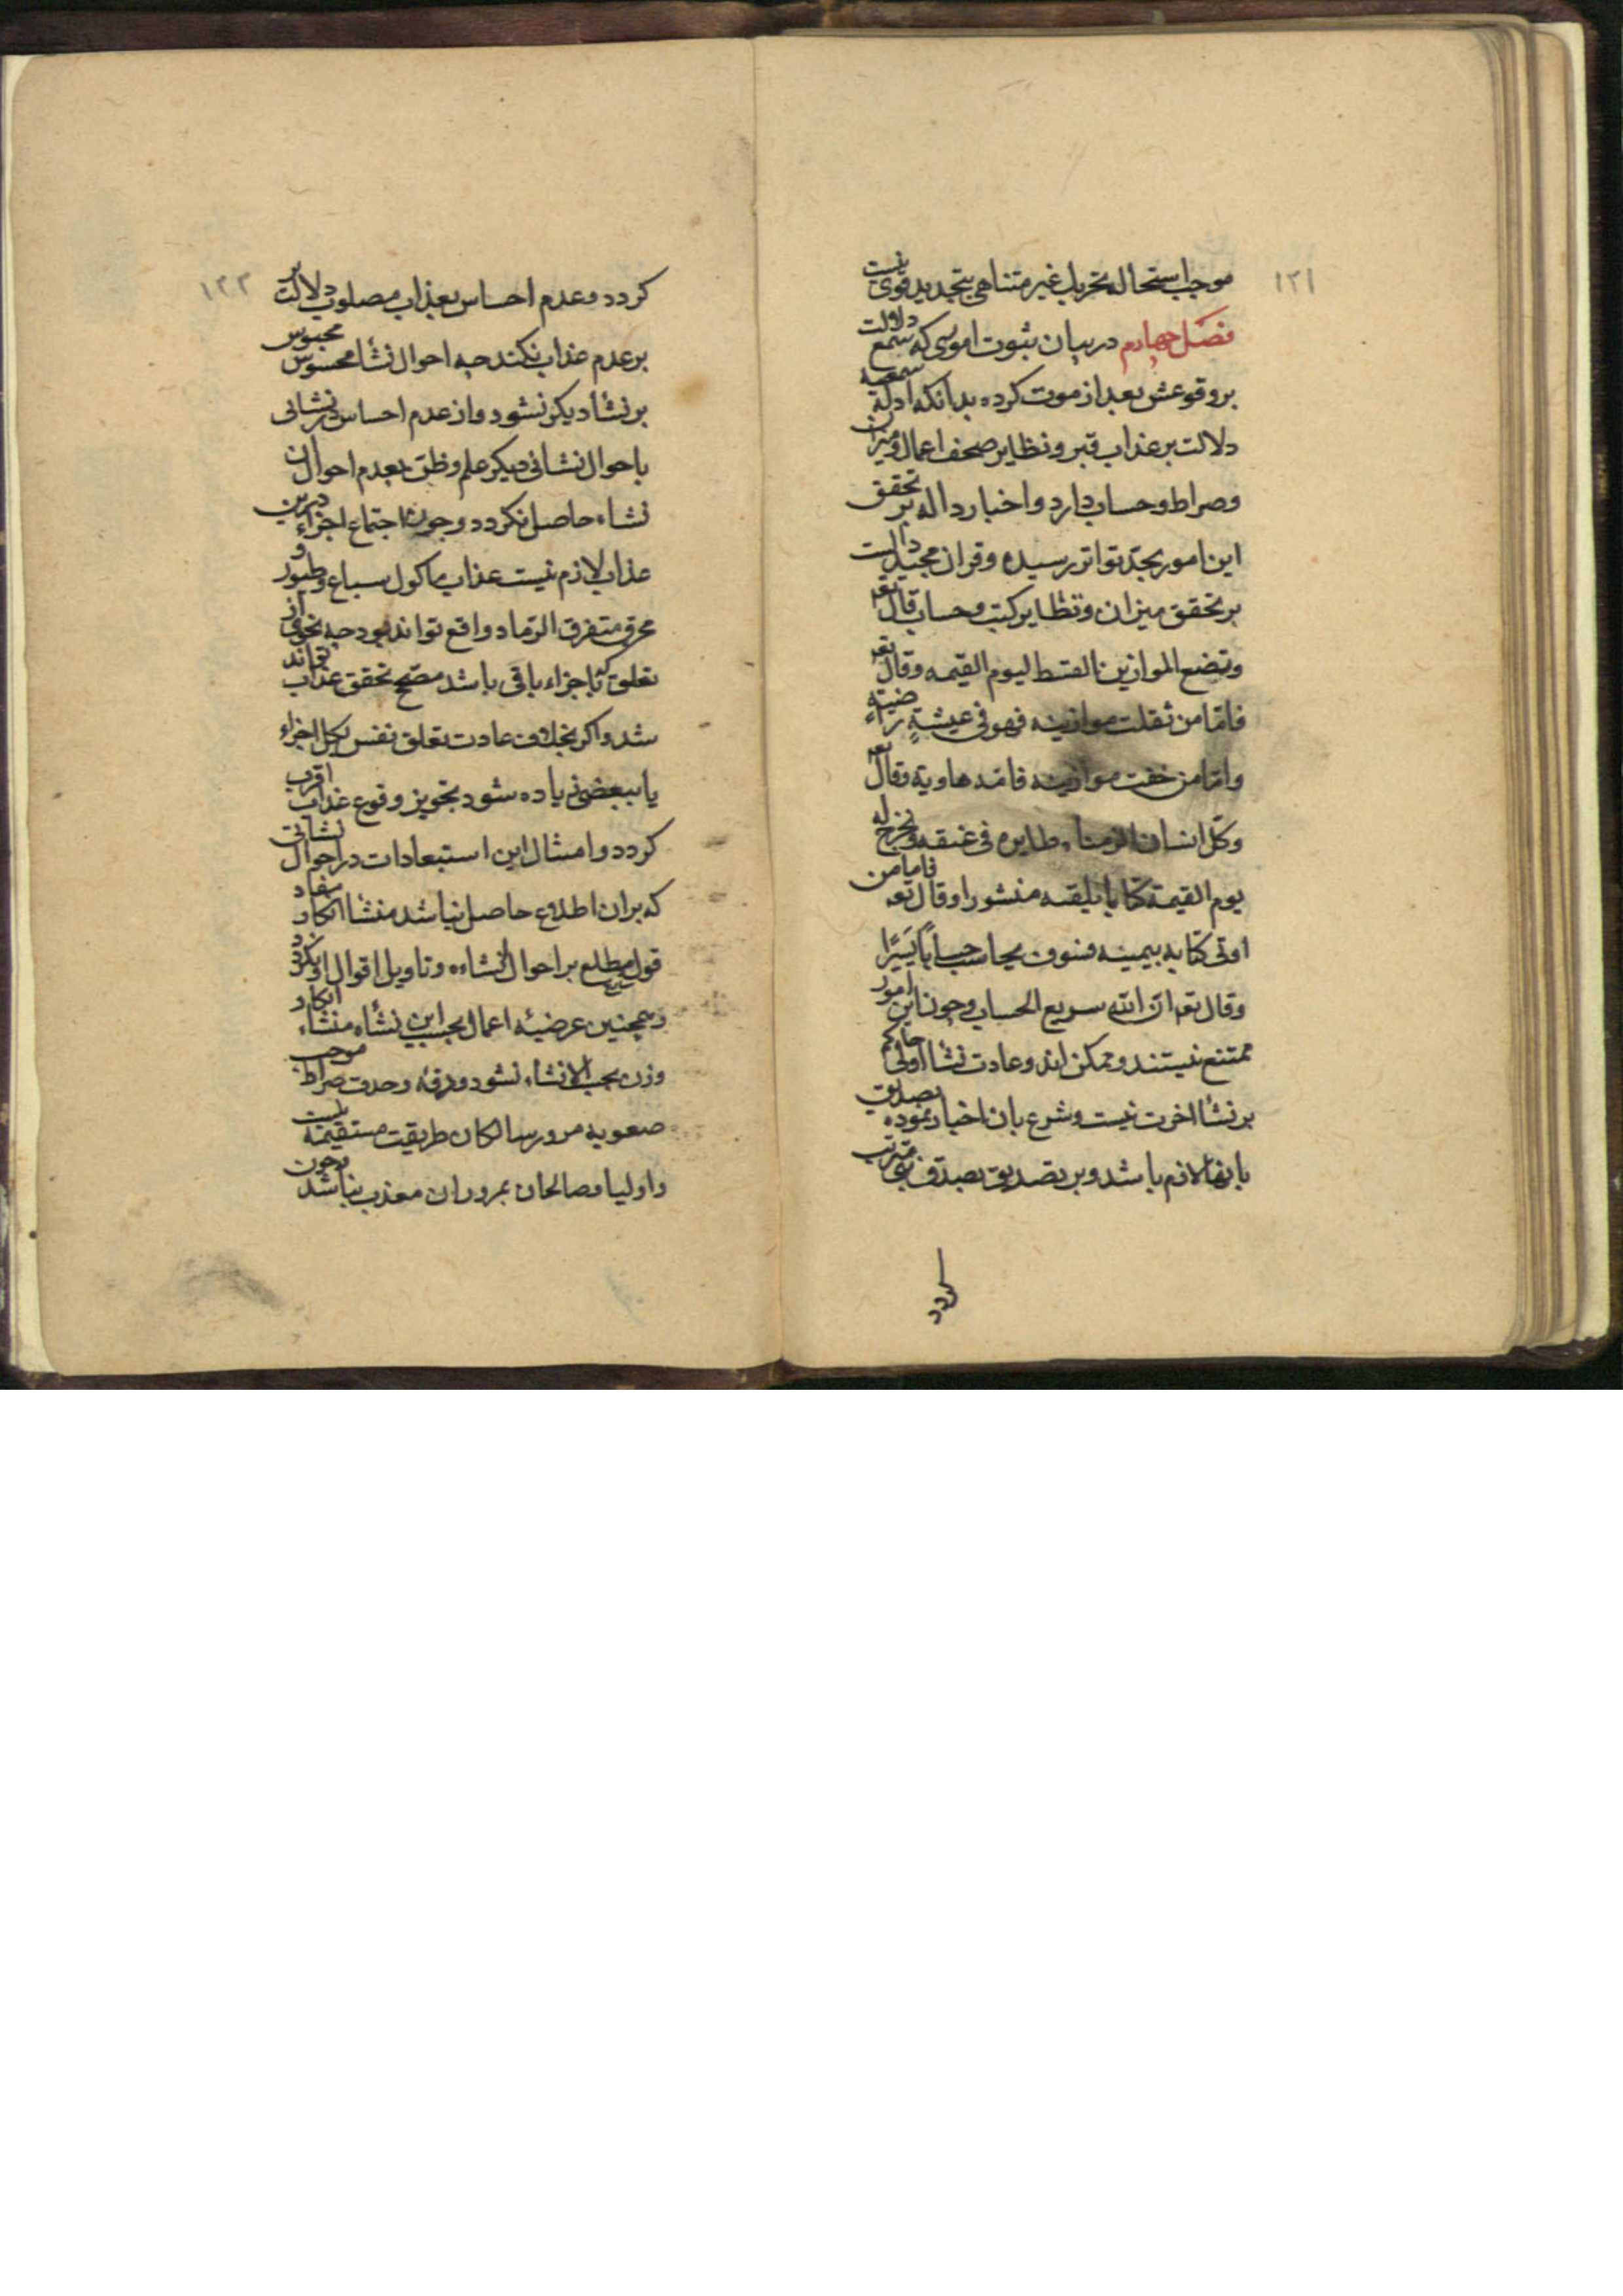 ١٢١
موجب استحاله تحریک غیر متناهی بتجدید قوی نیست
فصل چهارم در بیان ثبوت اموری که سمع دلالت
بر وقوعش بعد از موت کرده بدانکه ادله سمعیه
دلالت بر عذاب قبر و نظایر صحف اعمال و میزان
و صراط و حساب دارد و اخبار داله بر تحقق
این امور بحد تواتر رسیده و قران مجید دالست
بر تحقق میزان و نظایر کتب و حساب قال تعه
و نضع الموازین القسط لیوم القیمه و قال تعه
فامّا من ثقلت موازینه فهو فی عیشةٍ راضیة
و امّا من خفت موازینه فامّه هاویة و قال تعه
و کلّ انسان الزمناه طایره فی عنقه و نخرج له
یوم القیمة کتابا یلقیه منشورا و قال تعه فاما من
اوتی کتابه بیمینه فسوف یحاسب حساباً یَسیرًا
و قال تعه ان الله سریع الحساب و چون این امور
ممتنع نیستند و ممکن اند و عادت نشأ اولی حاکم
بر نشأ اخرت نیست و شرع بان اخبار نموده تصدیق
بانها لازم باشد و بر تصدیق بصدق نبی مترتب
کردد
١٢٢
کردد و عدم احساس بعذاب مصلوب دلالت بر
بر عدم عذاب نکند چه احوال نشأ محسوس محبوس
بر نشأ دیکر نشود و از عدم احساس در نشانی
باحوال نشانی دیکر علم و ظن بعدم احوال ان
نشاء حاصل نکردد و چون اجتماع اجزاء درین
عذاب لازم نیست عذاب ماکول سباع و طیور و
محرق متفرق الرماد واقع تواند بود چه نحوی از
تعلق که باجزاء باقی باشد مصحح تحقق عذاب تواند
شد و اکر بخلاف عادت تعلق نفس بکل اجزاء
یا ببعضی زیاده شود تجویز وقوع عذاب اقرب
کردد و امثال این استبعادات در احوال نشاتی
که بران اطلاع حاصل نباشد منشا انکار
قول مطلع بر احوال ان نشاءه و تاویل اقوال او نکردد
و همچنین عرضیه اعمال بحسب این نشأه منشاء انکار
وزن بحسب ان نشاء نشود و دقه و حدت صراط موجب
صعوبه مرور سالکان طریقت مستقیمه نیست
و اولیا و صالحان بمرور ان معذب نباشد و چون